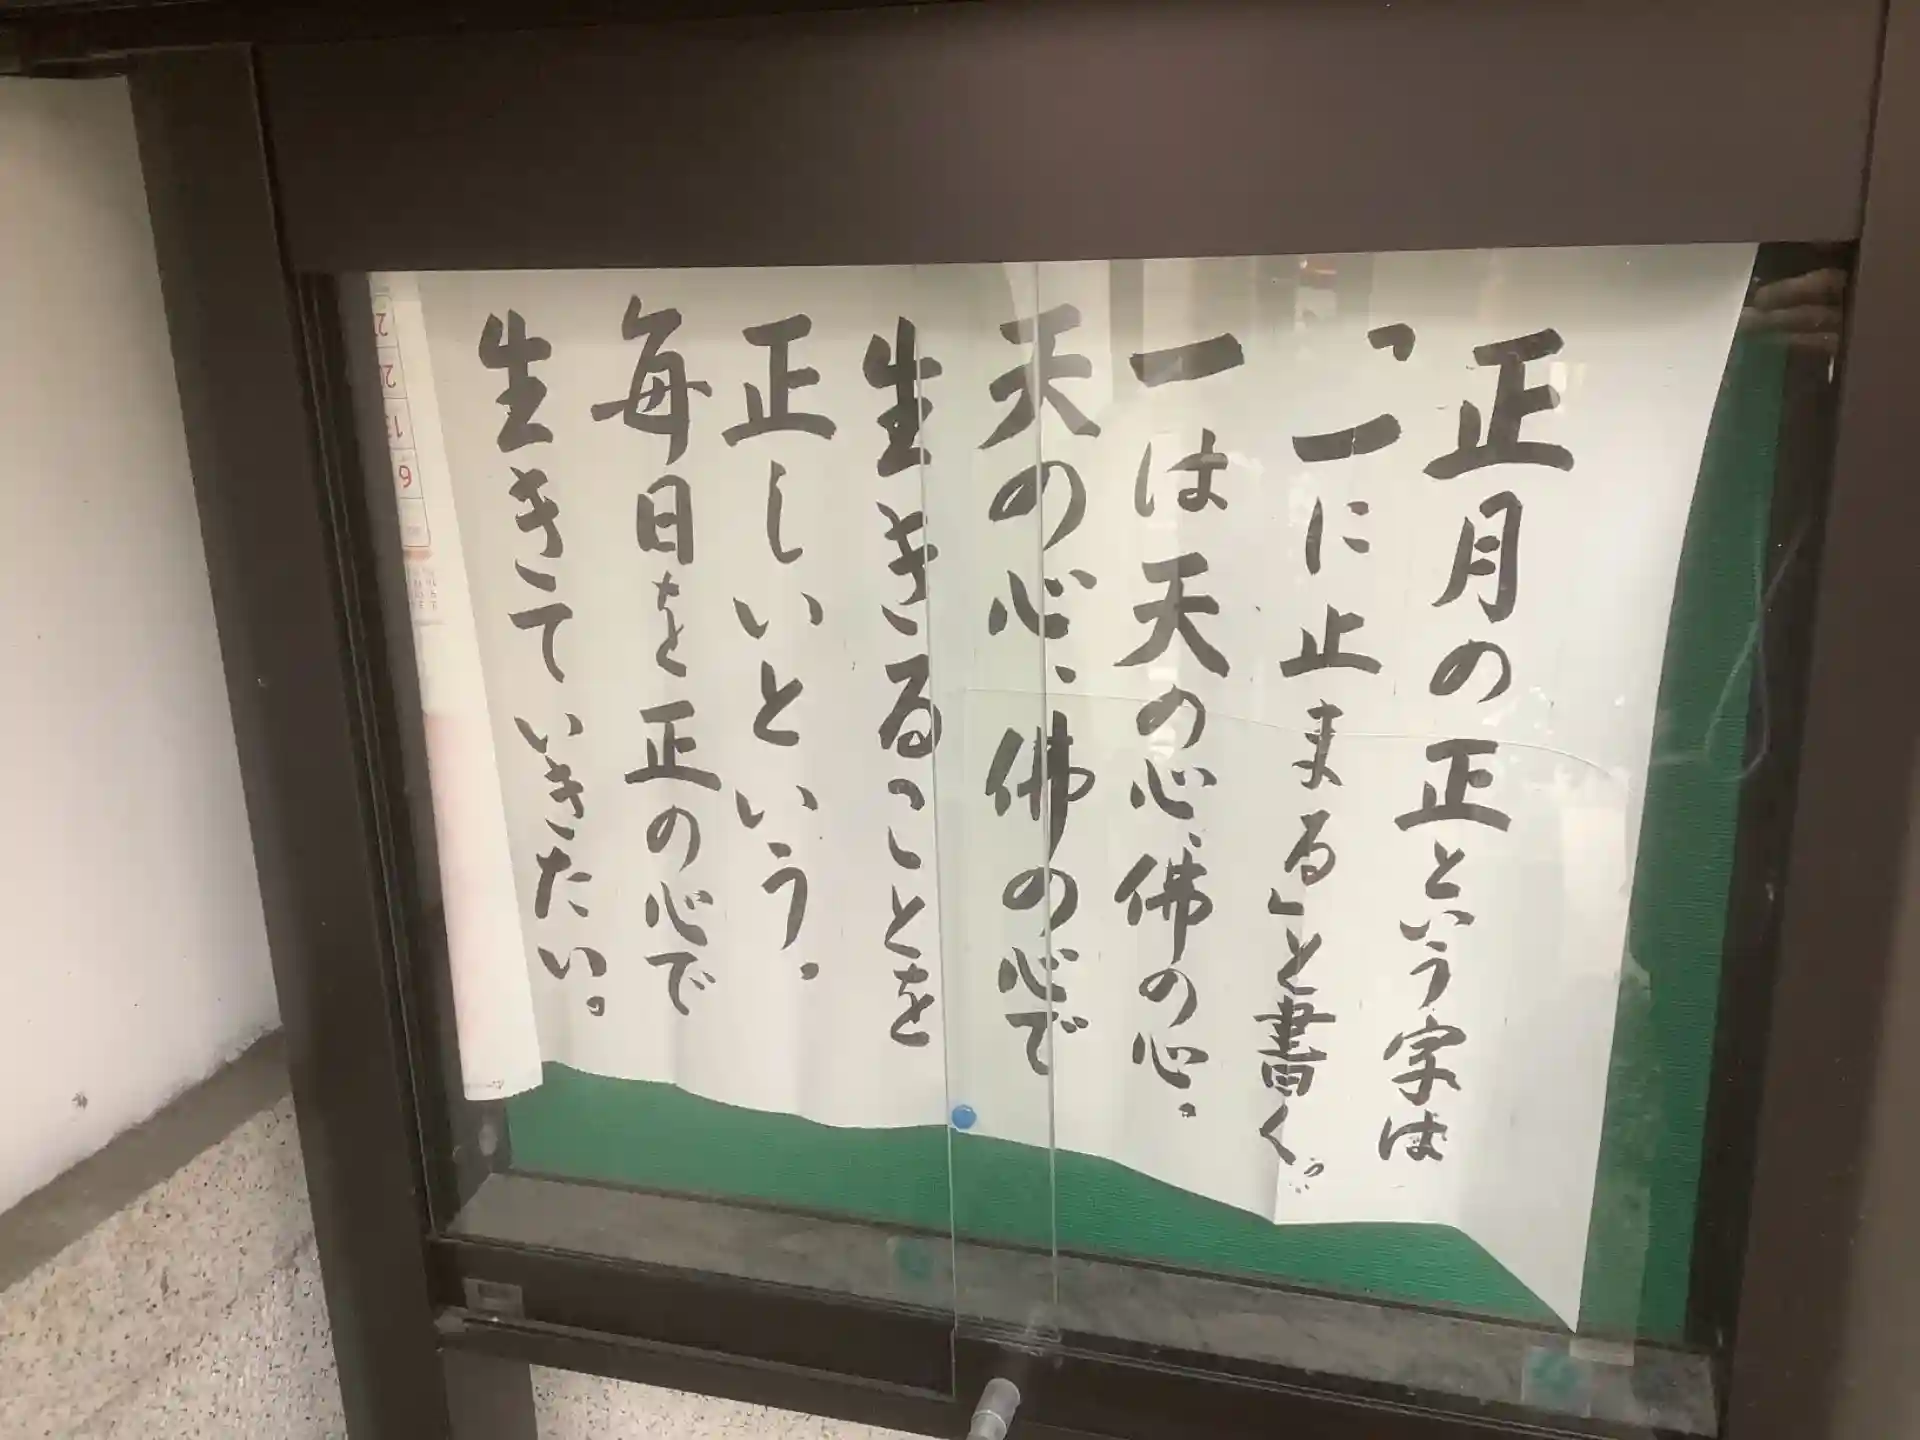 正月の正という字は
「一に止まる」と書く。
一は天の心、佛の心。
天の心、佛の心で
生きることを
正しいという。
毎日を正の心で
生きていきたい。
6